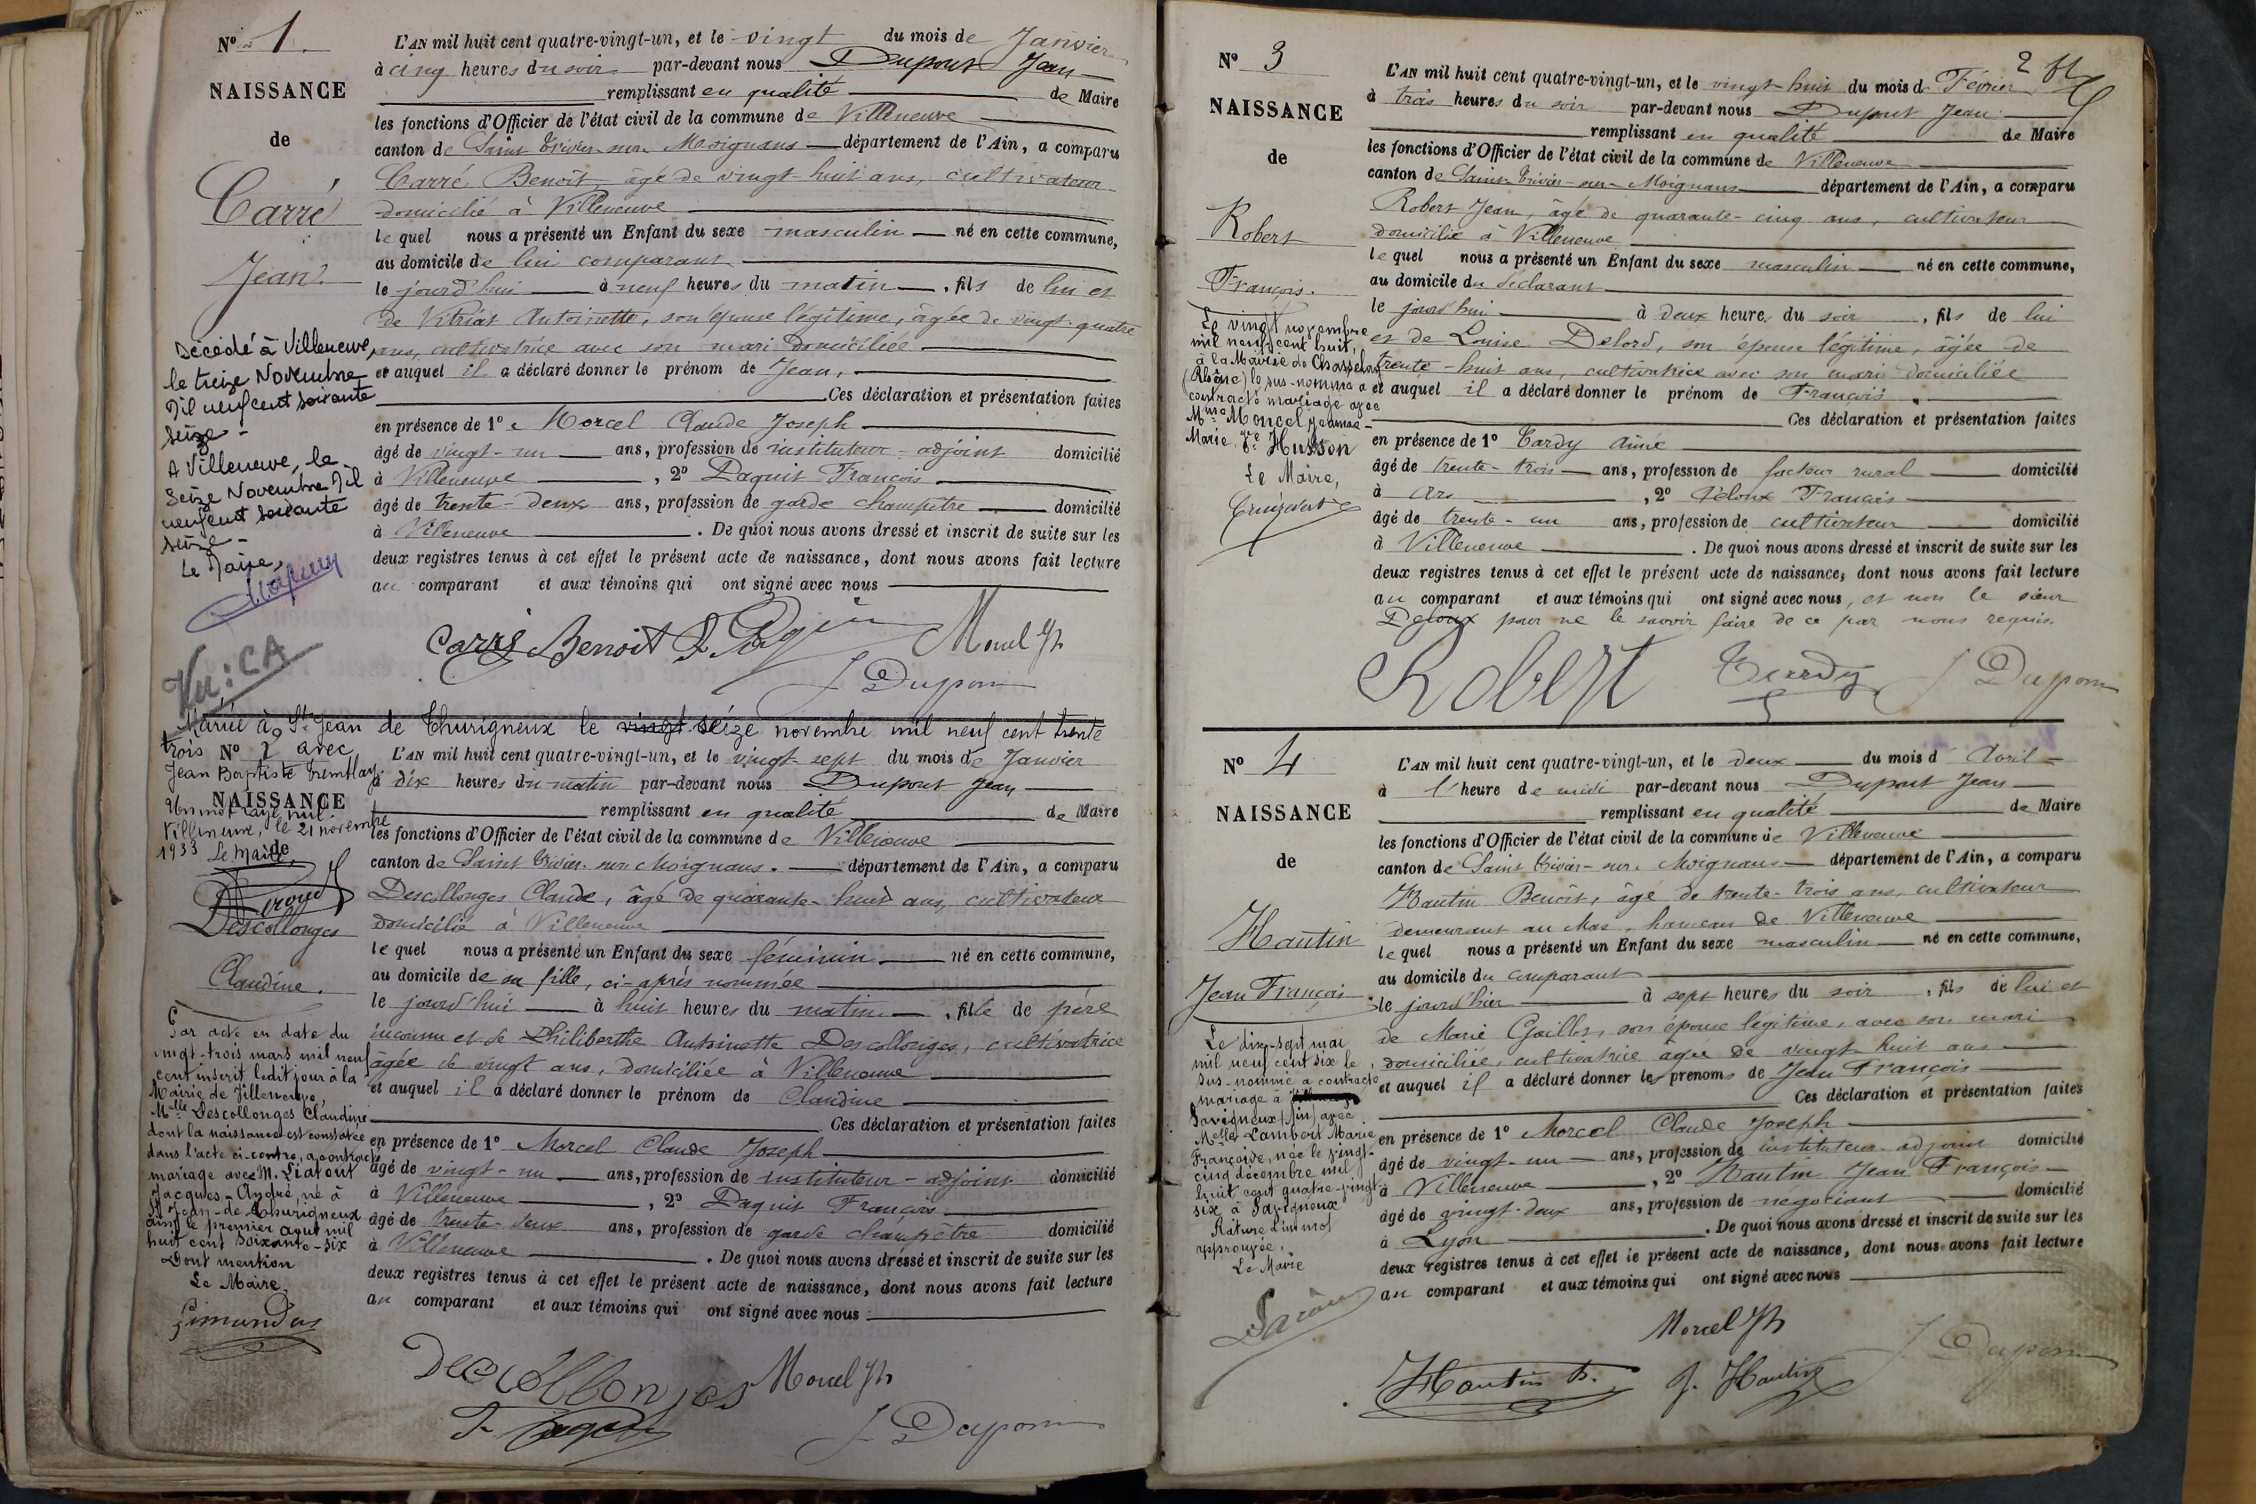 N° 1.
NAISSANCE
de
Carré
Jean.
Décédé à Villeneuve,
le treize Novembre
Mil neuf cent soixante
seize -
A Villeneuve, le
Seize Novembre Mil
neuf cent soixante
seize -
Le Maire,
Vu : CA
L'AN mil huit cent quatre-vingt-un, et le vingt du mois de Janvier
à cinq heures du soir par-devant nous Dupont Jean
remplissant en qualité de Maire
les fonctions d'Officier de l'état civil de la commune de Villeneuve
canton de Saint Trivier-sur-Moignans département de l'Ain, a comparu
Carré Benoît, âgé de vingt huit ans, cultivateur
domicilié à Villeneuve
lequel nous a présenté un Enfant du sexe masculin né en cette commune,
au domicile de lui comparant
le jourd'hui à neuf heures du matin, fils de lui et
de Vitriat Antoinette, son épouse légitime, âgée de vingt-quatre
ans, cultivatrice avec son mari domiciliée
et auquel il a déclaré donner le prénom de Jean,
Ces déclaration et présentation faites
en présence de 1° Morcel Claude Joseph
âgé de vingt-un ans, profession de instituteur-adjoint domicilié
à Villeneuve, 2° Paquit François
âgé de trente-deux ans, profession de garde champêtre domicilié
à Villeneuve. De quoi nous avons dressé et inscrit de suite sur les
deux registres tenus à cet effet le présent acte de naissance, dont nous avons fait lecture
au comparant et aux témoins qui ont signé avec nous
Carré Benoit Morcel Jh
J Dupont
Mariée à St Jean de Thurigneux le vingt seize novembre mil neuf cent trente
trois avec
Jean Baptiste Tremblay
Un mot rayé nul.
Villeneuve, le 21 novembre
1933 Le Maire,
N° 2
NAISSANCE
de
Descollonges
Claudine.
Par acte en date du
vingt-trois mars mil neuf
cent inscrit ledit jour à la
Mairie de Villeneuve,
Melle Descollonges Claudine
dont la naissance est constatée
dans l'acte ci-contre, a contracté
mariage avec M. Liatout
Jacques-André, né à
St Jean-de-Thurigneux
Ain, le premier août mil
huit cent soixante-six
Dont mention
Le Maire,
L'AN mil huit cent quatre-vingt-un, et le vingt-sept du mois de Janvier
à dix heures du matin par-devant nous Dupont Jean
remplissant en qualité de Maire
les fonctions d'Officier de l'état civil de la commune de Villeneuve
canton de Saint Trivier-sur-Moignans. département de l'Ain, a comparu
Descollonges Claude, âgé de quarante-huit ans, cultivateur
domicilié à Villeneuve
lequel nous a présenté un Enfant du sexe féminin né en cette commune,
au domicile de sa fille, ci-après nommée
le jourd'hui à huit heures du matin, fille de père
inconnu et de Philiberthe Antoinette Descollonges, cultivatrice
âgée de vingt ans, domiciliée à Villeneuve
et auquel il a déclaré donner le prénom de Claudine
Ces déclaration et présentation faites
en présence de 1° Morcel Claude Joseph
âgé de vingt-un ans, profession de instituteur-adjoint domicilié
à Villeneuve, 2° Paquit François
âgé de trente-deux ans, profession de garde champêtre domicilié
à Villeneuve. De quoi nous avons dressé et inscrit de suite sur les
deux registres tenus à cet effet le présent acte de naissance, dont nous avons fait lecture
au comparant et aux témoins qui ont signé avec nous
Descollonges Morcel Jh
J Dupont
2
N° 3
NAISSANCE
de
Robert
François.
Le vingt novembre
mil neuf cent huit,
à la Mairie de Chasselay
(Rhône) le sus-nommé a
contracté mariage avec
Mme Moncel Jeanne-
Marie, Vve Husson
Le Maire,
L'AN mil huit cent quatre-vingt-un, et le vingt-huit du mois de Février
à trois heures du soir par-devant nous Dupont Jean
remplissant en qualité de Maire
les fonctions d'Officier de l'état civil de la commune de Villeneuve
canton de Saint Trivier-sur-Moignans département de l'Ain, a comparu
Robert Jean, âgé de quarante-cinq ans, cultivateur
domicilié à Villeneuve
lequel nous a présenté un Enfant du sexe masculin né en cette commune,
au domicile du déclarant
le jourd'hui à deux heures du soir, fils de lui
et de Louise Delord, son épouse légitime, âgée de
trente-huit ans, cultivatrice avec son mari domiciliée
et auquel il a déclaré donner le prénom de François.
Ces déclaration et présentation faites
en présence de 1° Tardy Aimé
âgé de trente-trois ans, profession de facteur rural domicilié
à Ars, 2° Péloux François
âgé de trente-un ans, profession de cultivateur domicilié
à Villeneuve. De quoi nous avons dressé et inscrit de suite sur les
deux registres tenus à cet effet le présent acte de naissance, dont nous avons fait lecture
au comparant et aux témoins qui ont signé avec nous, et non le sieur
Peloux pour ne le savoir faire de ce par nous requis.
Robert Tardy J Dupont
N° 4
NAISSANCE
de
Hautin
Jean François
Le dix-sept mai
mil neuf cent six le
sus-nommé a contracté
mariage à
Savigneux (Ain) avec
Melle Lambert Marie
Françoise, née le vingt-
cinq décembre mil
huit cent quatre-vingt
six à Savigneux
Rature d'un mot
approuvée.
Le Maire
L'AN mil huit cent quatre-vingt-un, et le deux du mois d'Avril
à l'heure de midi par-devant nous Dupont Jean
remplissant en qualité de Maire
les fonctions d'Officier de l'état civil de la commune de Villeneuve
canton de Saint Trivier-sur-Moignans département de l'Ain, a comparu
Hautin Benoît, âgé de trente-trois ans, cultivateur
demeurant au Mas, hameau de Villeneuve
lequel nous a présenté un Enfant du sexe masculin né en cette commune,
au domicile du comparant
le jourd'hier à sept heures du soir, fils de lui et
de Marie Gaillot, son épouse légitime, avec son mari
domiciliée, cultivatrice âgée de vingt-huit ans
et auquel il a déclaré donner les prénoms de Jean François
Ces déclaration et présentation faites
en présence de 1° Morcel Claude Joseph
âgé de vingt-un ans, profession de instituteur-adjoint domicilié
à Villeneuve, 2° Hautin Jean François
âgé de vingt-deux ans, profession de négociant domicilié
à Lyon. De quoi nous avons dressé et inscrit de suite sur les
deux registres tenus à cet effet le présent acte de naissance, dont nous avons fait lecture
au comparant et aux témoins qui ont signé avec nous
Morcel Jh
Hautin B. J. Hautin J Dupont